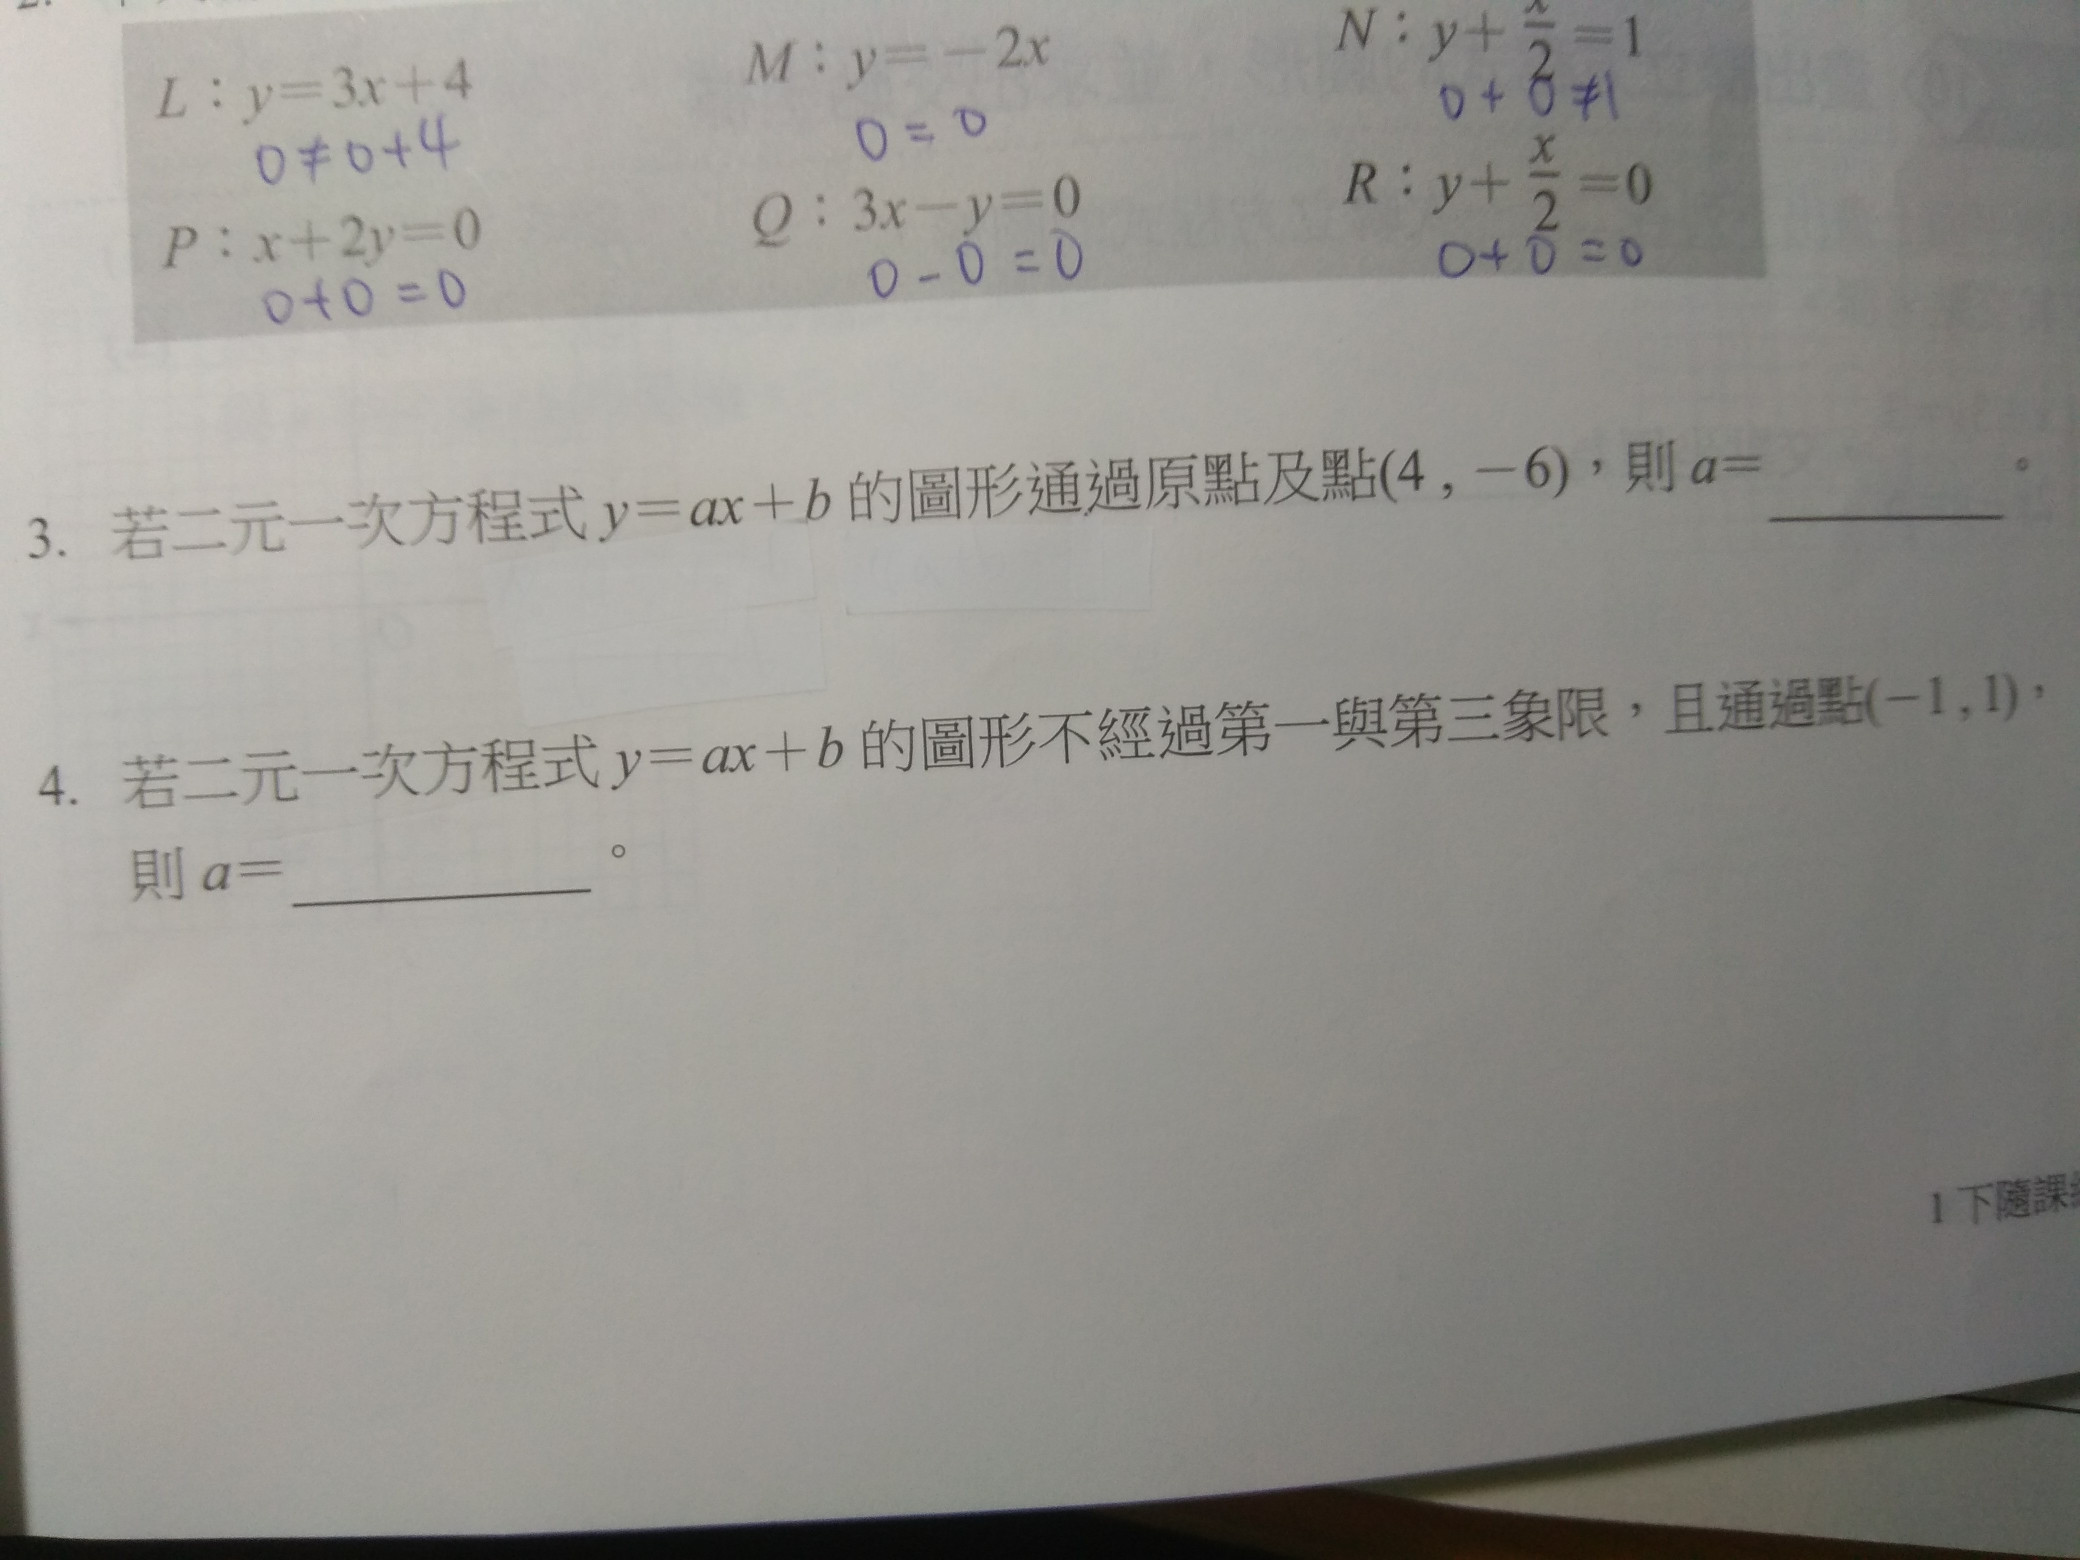 2.
L：y=3x+4 M：y=-2x N：y+x/2=1
0≠0+4 0=0 0+0≠1
P：x+2y=0 Q：3x-y=0 R：y+x/2=0
0+0=0 0-0=0 0+0=0
3. 若二元一次方程式 y=ax+b 的圖形通過原點及點(4 , -6)，則 a=______。
4. 若二元一次方程式 y=ax+b 的圖形不經過第一與第三象限，且通過點(-1 , 1)，
則 a=______。
1下隨課